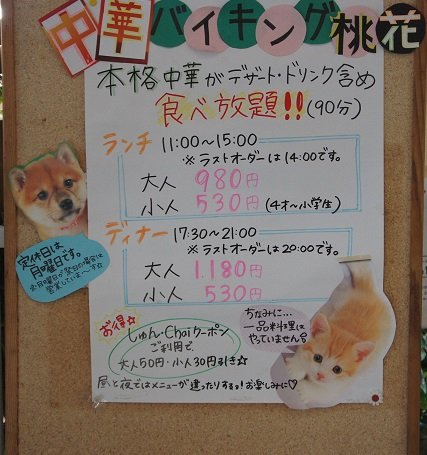 中華バイキング桃花
本格中華がデザート・ドリンク含め
食べ放題!!(90分)
ランチ 11:00〜15:00
※ラストオーダーは14:00です。
大人 980円
小人 530円 (4才〜小学生)
ディナー 17:30〜21:00
※ラストオーダーは20:00です。
大人 1.180円
小人 530円
定休日は
月曜日です。
営業していま〜す☆
お得☆
しゅん・Chaiクーポン
ご利用で、
大人50円・小人30円引き☆
昼と夜ではメニューが違ったりするっ!お楽しみに♡
ちなみに…
一品料理は
やっていません